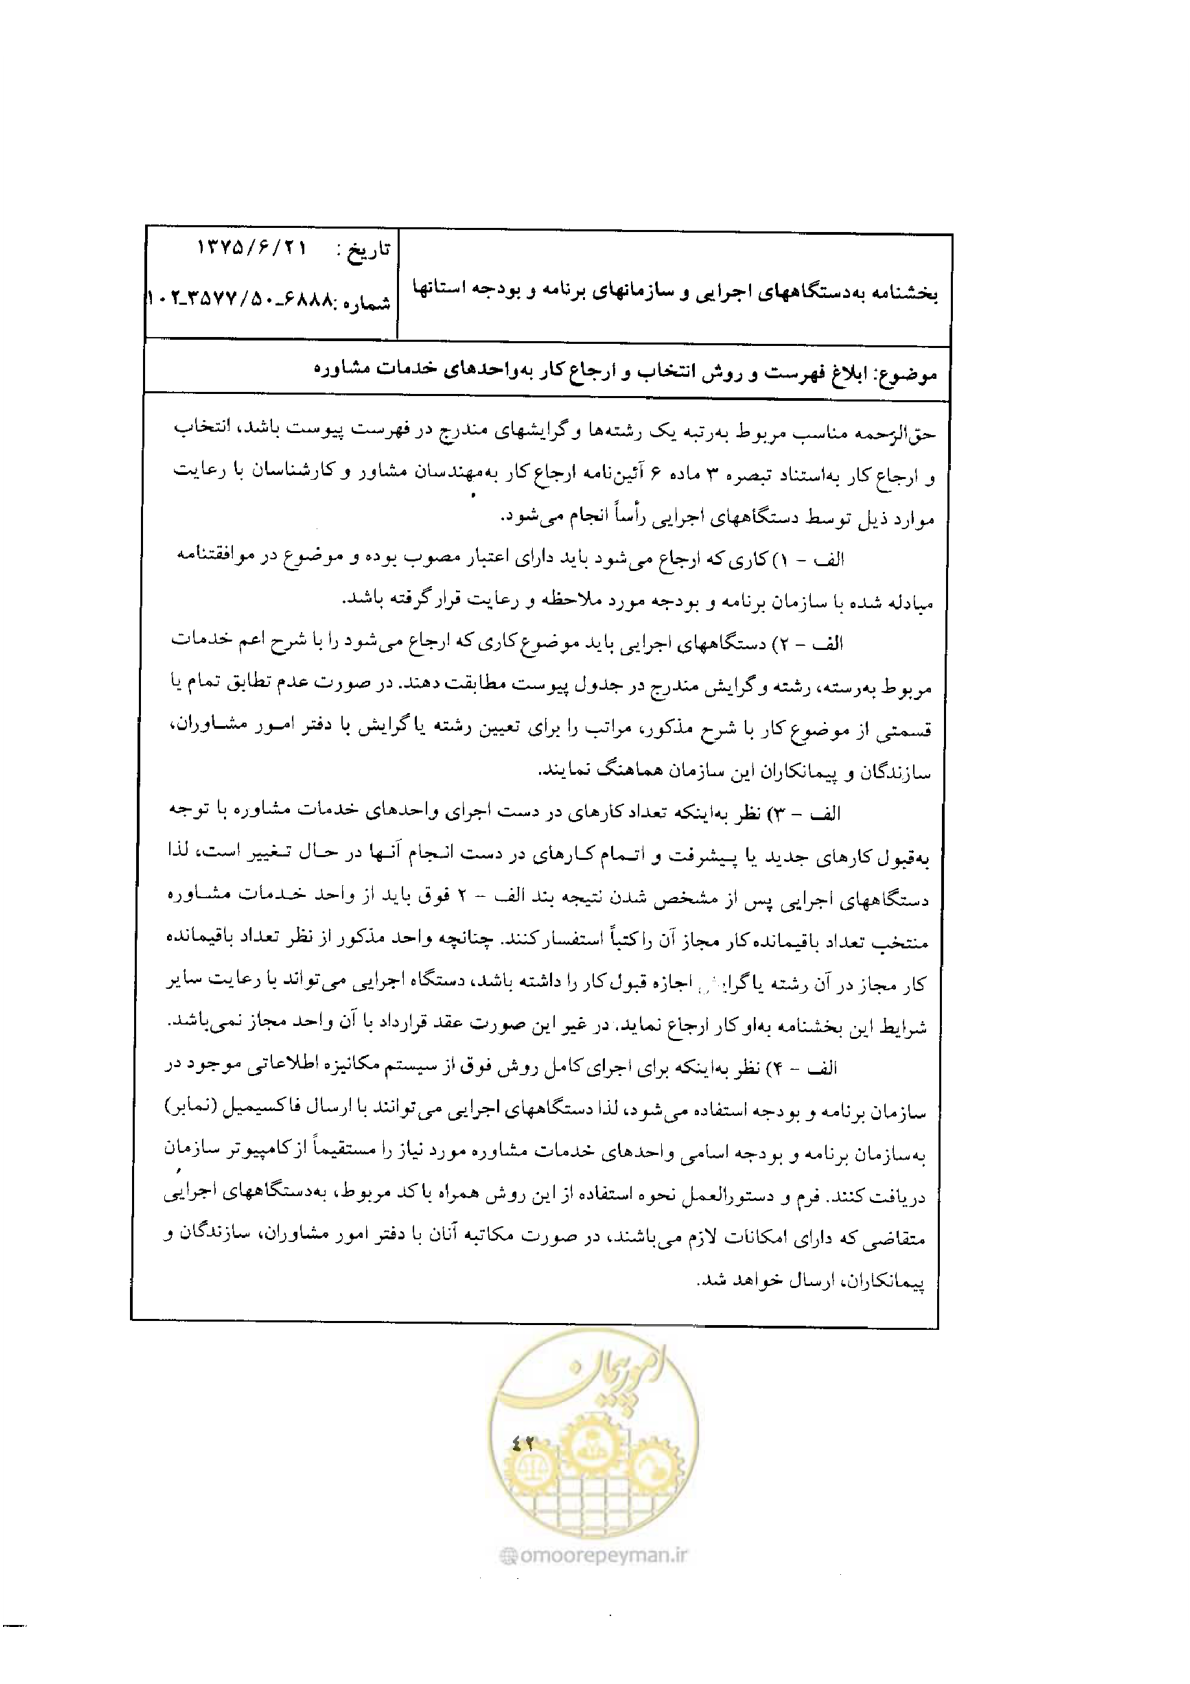 بخشنامه به‌دستگاههای اجرایی و سازمانهای برنامه و بودجه استانها
تاریخ : ۱۳۷۵/۶/۲۱
شماره :۱۰۲-۳۵۷۷/۵۰-۶۸۸۸
موضوع: ابلاغ فهرست و روش انتخاب و ارجاع کار به‌واحدهای خدمات مشاوره
حق‌الزحمه مناسب مربوط به‌رتبه یک رشته‌ها و گرایشهای مندرج در فهرست پیوست باشد، انتخاب
و ارجاع کار به‌استناد تبصره ۳ ماده ۶ آئین‌نامه ارجاع کار به‌مهندسان مشاور و کارشناسان با رعایت
موارد ذیل توسط دستگاههای اجرایی رأساً انجام می‌شود.
الف - ۱) کاری که ارجاع می‌شود باید دارای اعتبار مصوب بوده و موضوع در موافقتنامه
مبادله شده با سازمان برنامه و بودجه مورد ملاحظه و رعایت قرار گرفته باشد.
الف - ۲) دستگاههای اجرایی باید موضوع کاری که ارجاع می‌شود را با شرح اعم خدمات
مربوط به‌رسته، رشته و گرایش مندرج در جدول پیوست مطابقت دهند. در صورت عدم تطابق تمام یا
قسمتی از موضوع کار با شرح مذکور، مراتب را برای تعیین رشته یا گرایش با دفتر امور مشاوران،
سازندگان و پیمانکاران این سازمان هماهنگ نمایند.
الف - ۳) نظر به‌اینکه تعداد کارهای در دست اجرای واحدهای خدمات مشاوره با توجه
به‌قبول کارهای جدید یا پیشرفت و اتمام کارهای در دست انجام آنها در حال تغییر است، لذا
دستگاههای اجرایی پس از مشخص شدن نتیجه بند الف - ۲ فوق باید از واحد خدمات مشاوره
منتخب تعداد باقیمانده کار مجاز آن را کتباً استفسار کنند. چنانچه واحد مذکور از نظر تعداد باقیمانده
کار مجاز در آن رشته یا گرایش اجازه قبول کار را داشته باشد، دستگاه اجرایی می‌تواند با رعایت سایر
شرایط این بخشنامه به‌او کار ارجاع نماید، در غیر این صورت عقد قرارداد با آن واحد مجاز نمی‌باشد.
الف - ۴) نظر به‌اینکه برای اجرای کامل روش فوق از سیستم مکانیزه اطلاعاتی موجود در
سازمان برنامه و بودجه استفاده می‌شود، لذا دستگاههای اجرایی می‌توانند با ارسال فاکسیمیل (نمابر)
به‌سازمان برنامه و بودجه اسامی واحدهای خدمات مشاوره مورد نیاز را مستقیماً از کامپیوتر سازمان
دریافت کنند. فرم و دستورالعمل نحوه استفاده از این روش همراه با کد مربوط، به‌دستگاههای اجرایی
متقاضی که دارای امکانات لازم می‌باشند، در صورت مکاتبه آنان با دفتر امور مشاوران، سازندگان و
پیمانکاران، ارسال خواهد شد.
امور پیمان
٤٢
omoorepeyman.ir